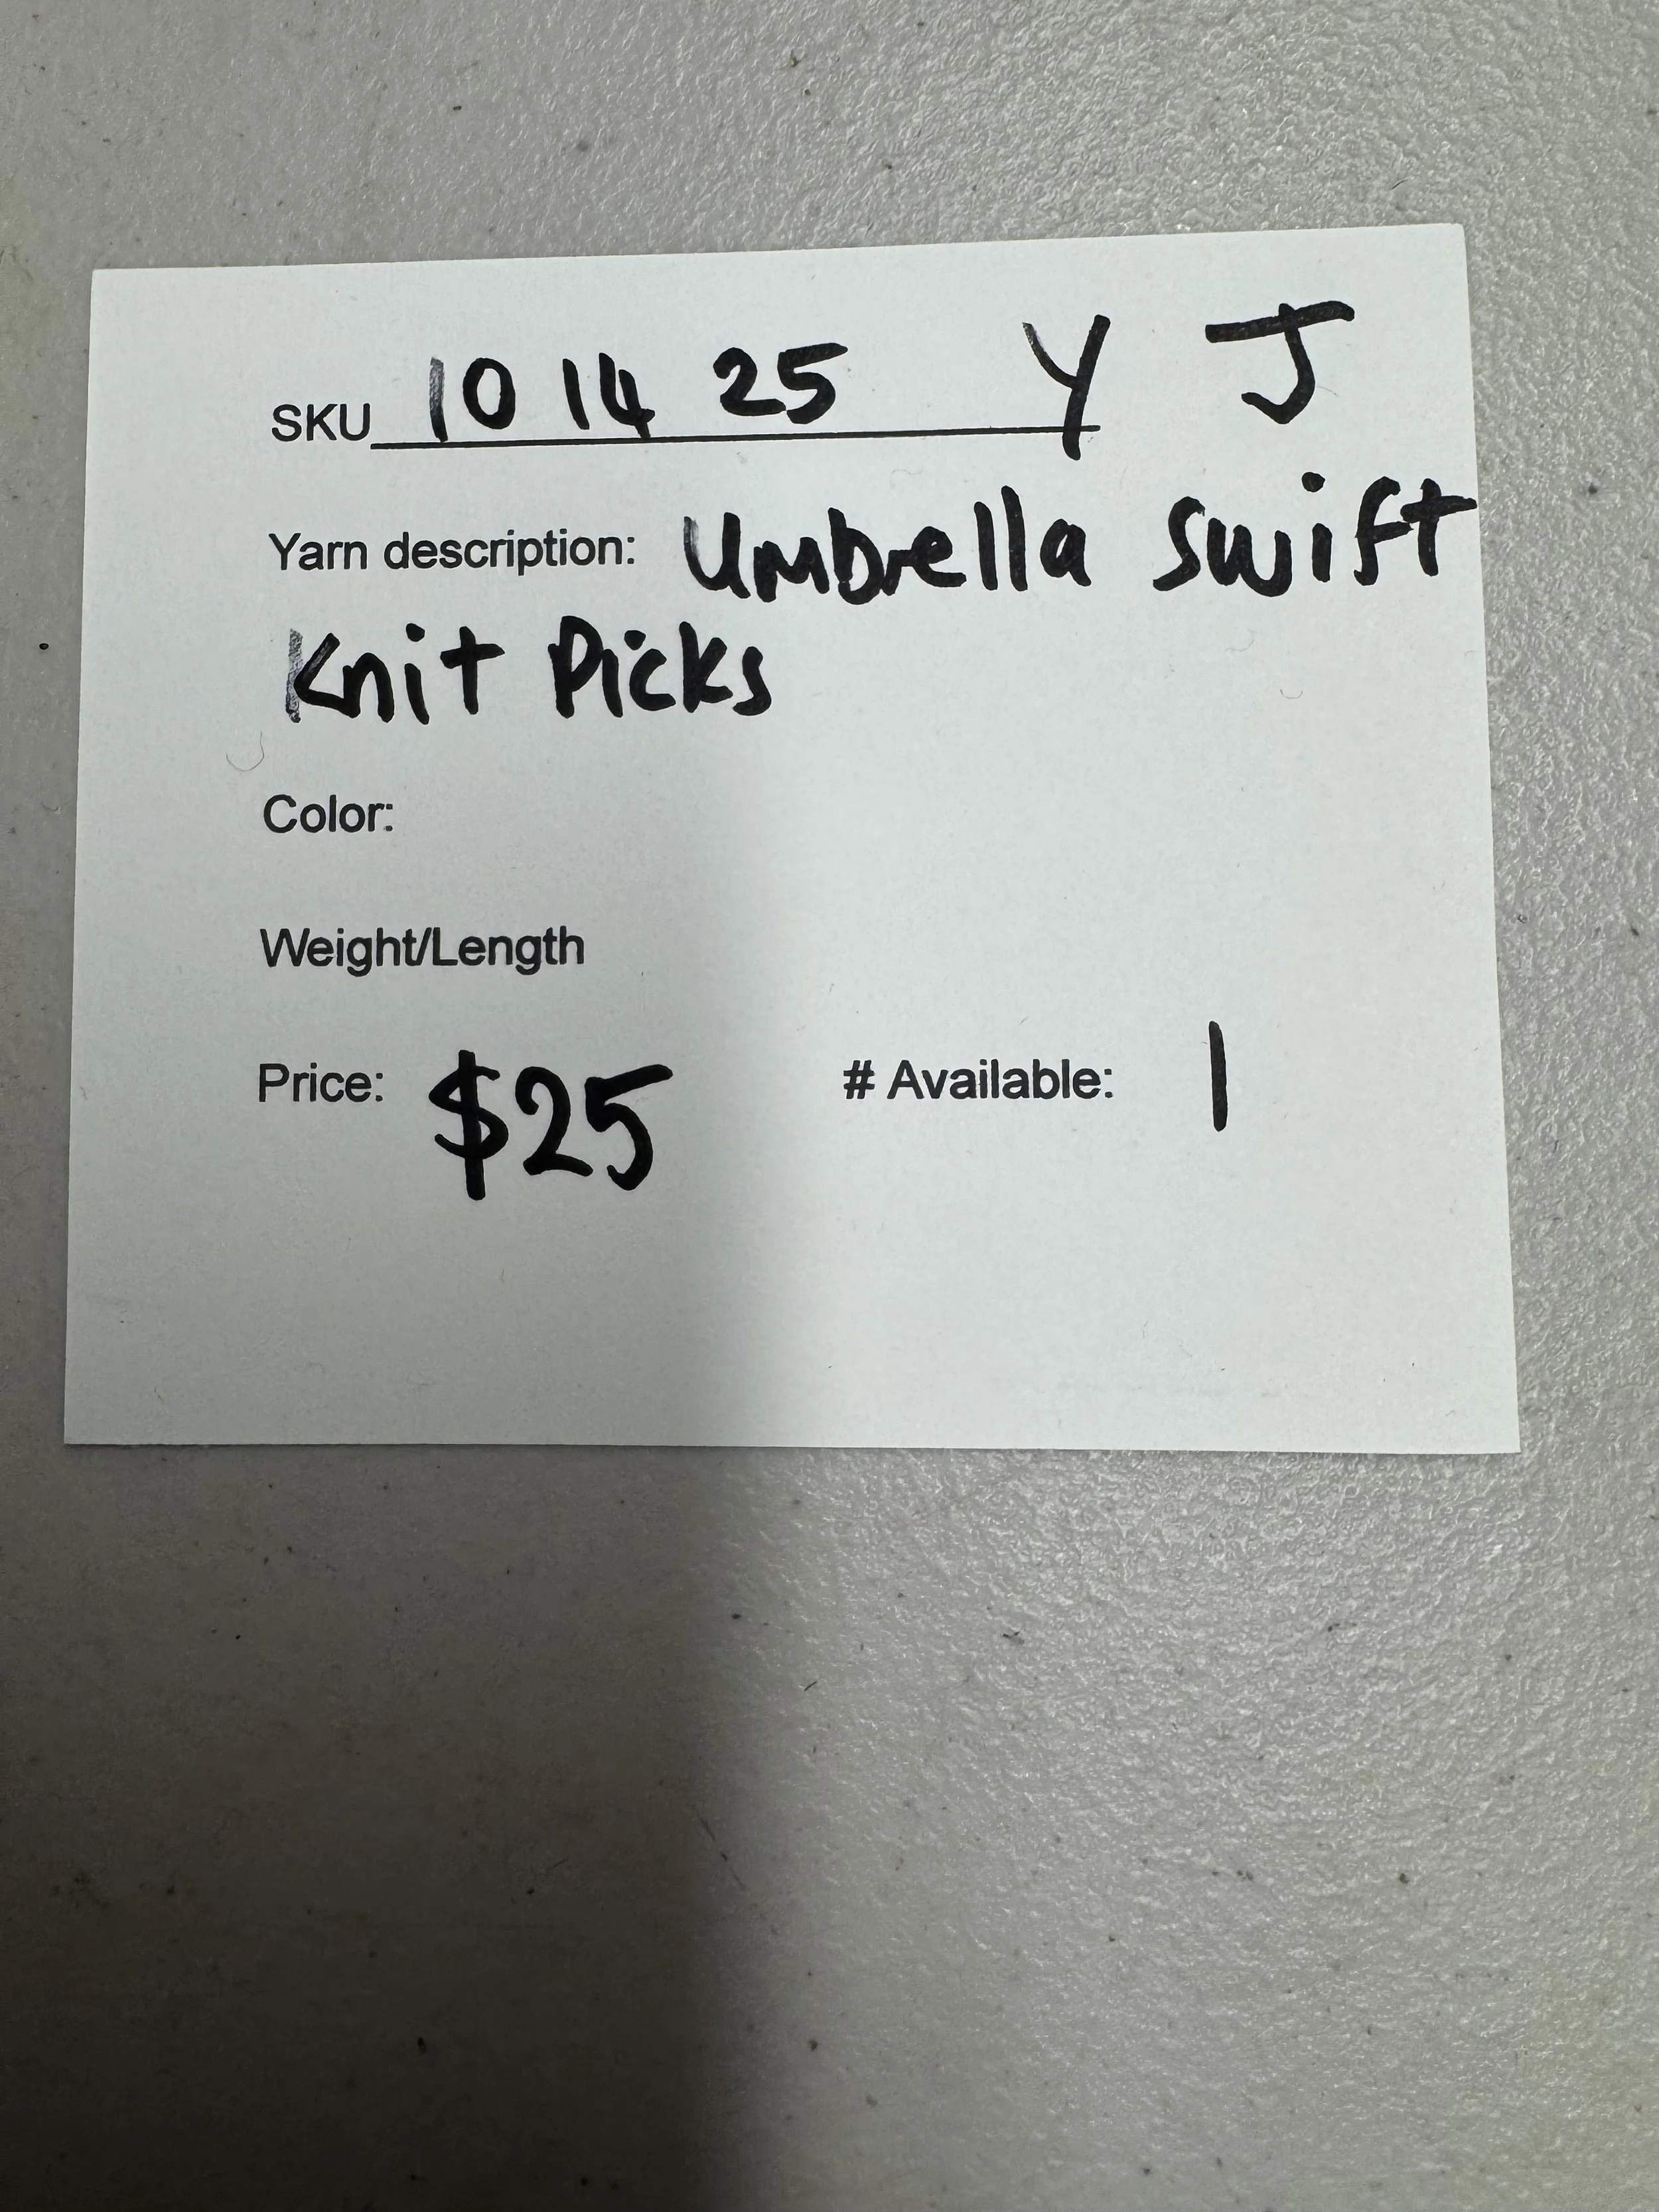 SKU 10 14 25 Y J
Yarn description: Umbrella Swift
Knit Picks
Color:
Weight/Length
Price: $25 # Available: 1